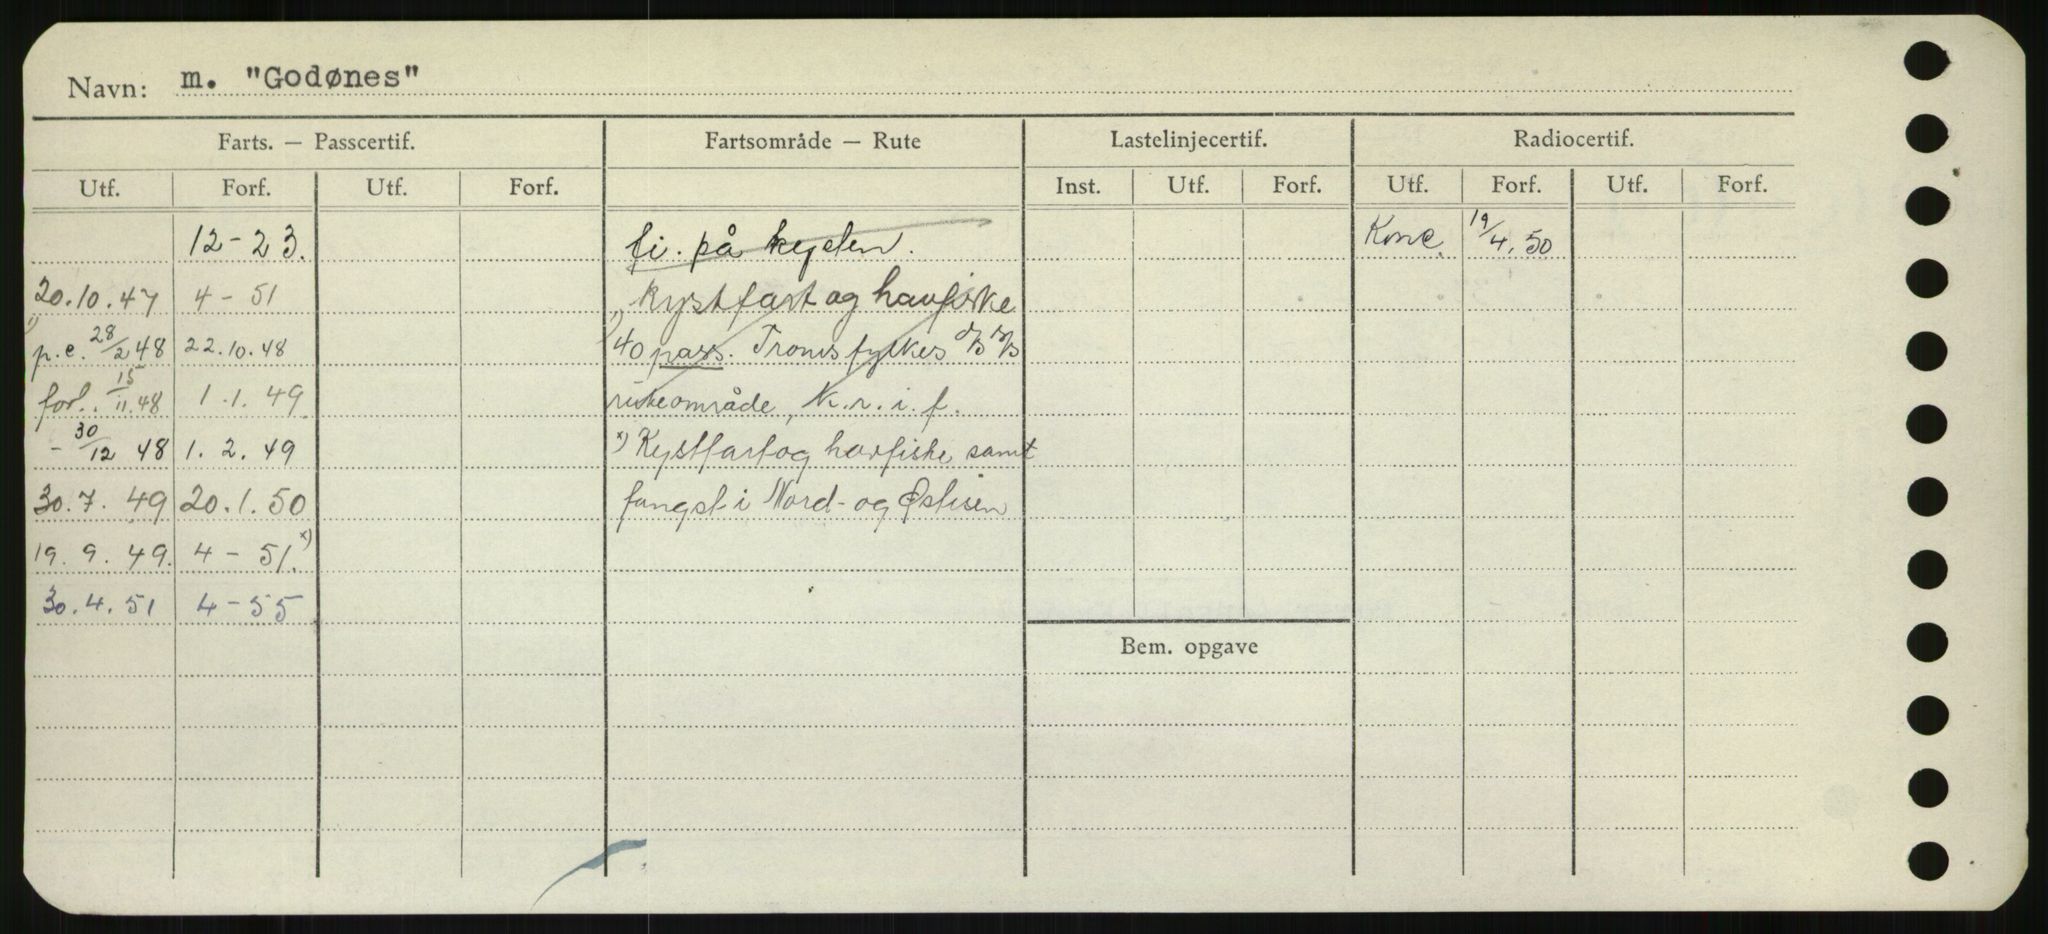 Navn: m. "Godønes"
Farts. — Passcertif. Fartsområde — Rute Lastelinjecertif. Radiocertif.
Utf. Forf. Utf. Forf. Inst. Utf. Forf. Utf. Forf. Utf. Forf.
12-23. fi. på kysten. Konc. 19/4.50
20.10.47 4-51 Kystfart og havfiske
1) p.c. 28/2 48 22.10.48 1) 40 pass. Troms fylkes
forl. 15/11.48 1.1.49 ruteområde, N.r.i.f.
- 30/12 48 1.2.49 x) Kystfart og havfiske samt
30.7.49 20.1.50 fangst i Nord- og Østisen
19.9.49. 4-51. x)
30.4.51 4-55
Bem. opgave